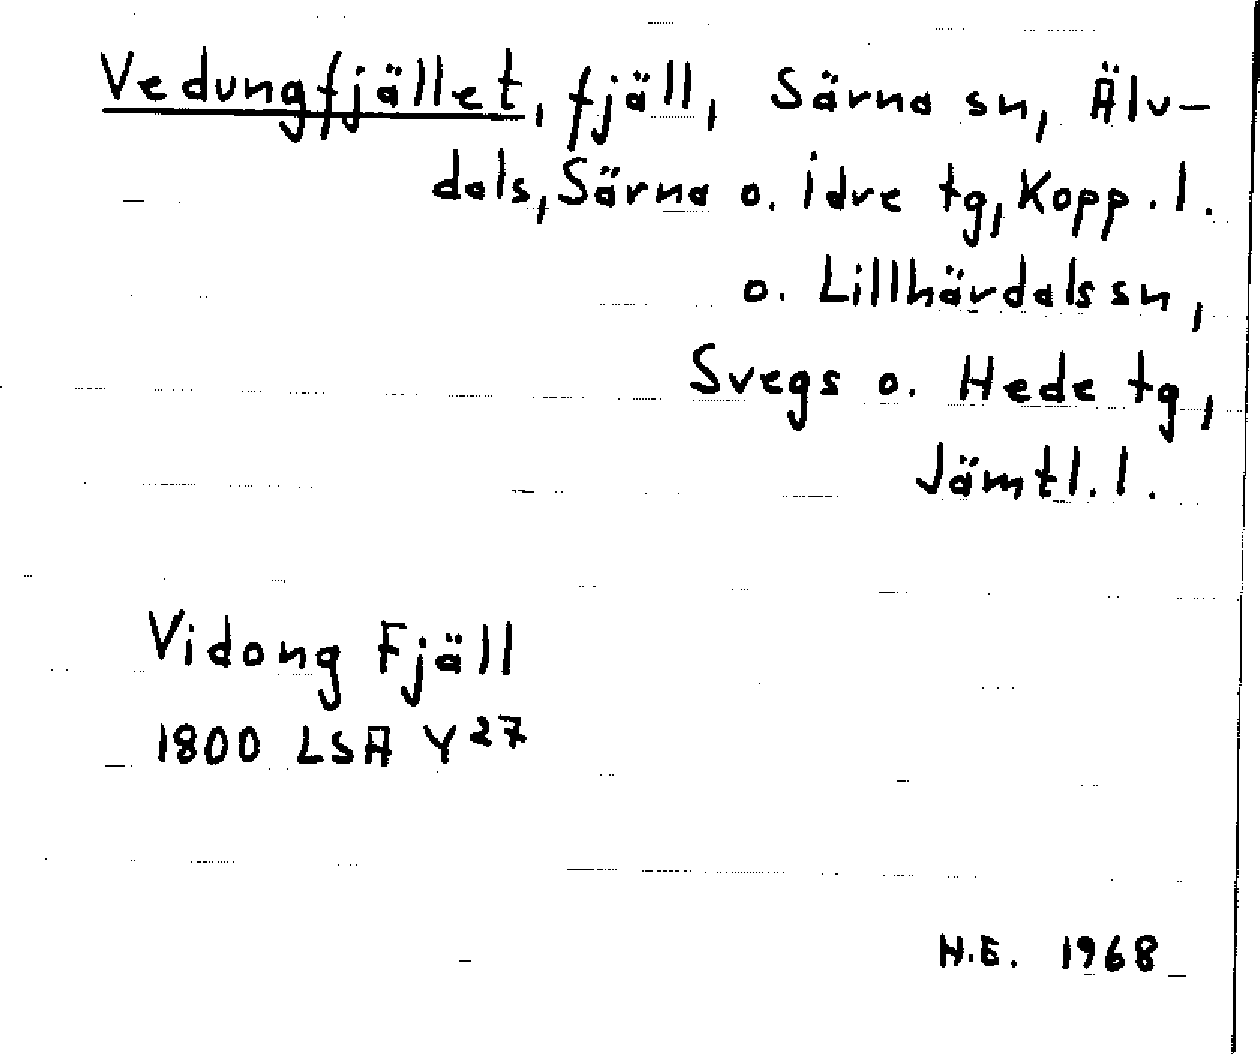 Vedungfjället, fjäll, Särna sn, Älv-
dals, Särna o. Idre tg, Kopp. l.
o. Lillhärdals sn,
Svegs o. Hede tg,
Jämtl. l.
Vidong Fjäll
1800 LSA Y27
H.E. 1968